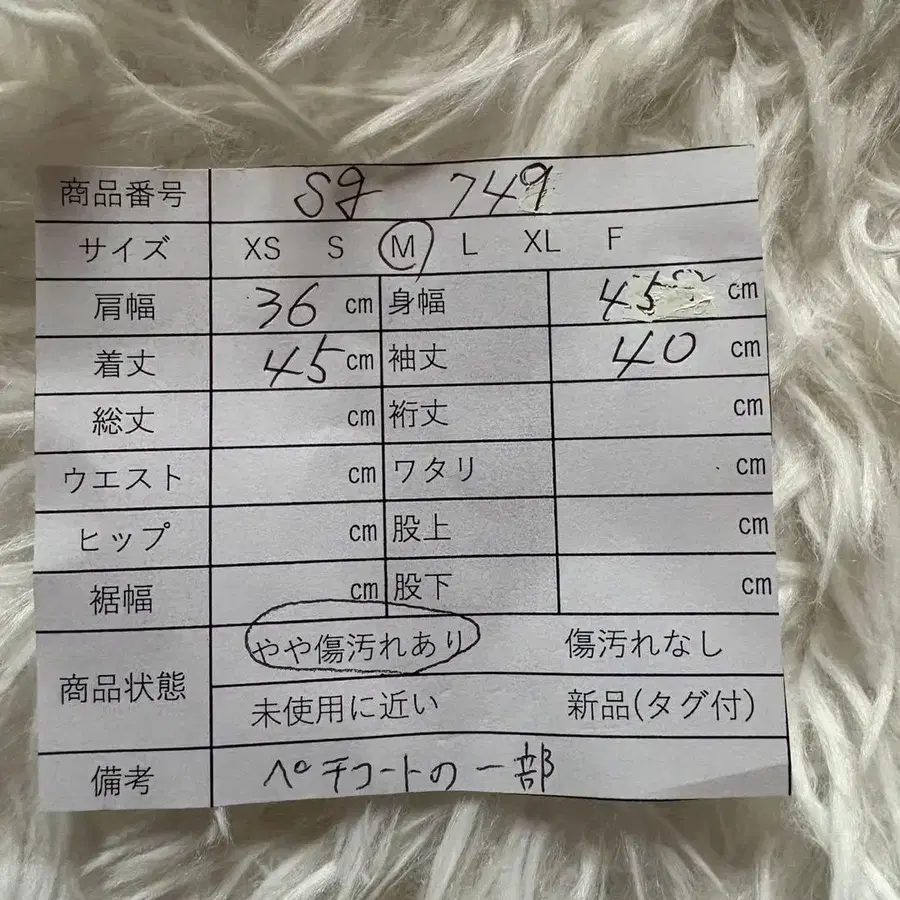 商品番号 sg 749
サイズ XS S M L XL F
肩幅 36 cm 身幅 45 cm
着丈 45 cm 袖丈 40 cm
総丈 cm 裄丈 cm
ウエスト cm ワタリ cm
ヒップ cm 股上 cm
裾幅 cm 股下 cm
やや傷汚れあり 傷汚れなし
商品状態
未使用に近い 新品(タグ付)
備考 ペチコートの一部